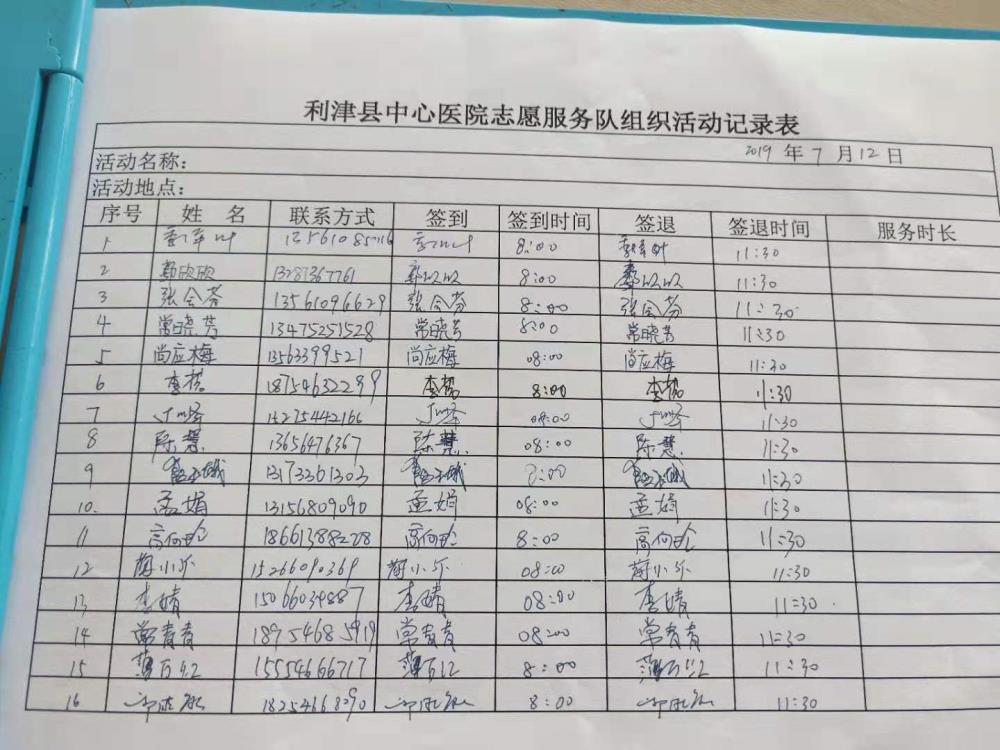 利津县中心医院志愿服务队组织活动记录表
2019 年 7 月 12 日
活动名称：
活动地点：
序号 姓 名 联系方式 签到 签到时间 签退 签退时间 服务时长
1 8:00 11:30
2 郭欣欣 13287367761 郭欣欣 8:00 郭欣欣 11:30
3 张会芬 13561096629 张会芬 8:00 张会芬 11:30
4 常晓芳 13475251528 常晓芳 8:00 常晓芳 11:30
5 尚应梅 13563399521 尚应梅 08:00 尚应梅 11:30
6 18754632299 8:00 11:30
7 15275442166 08:00 11:30
8 陈慧 13656476367 陈慧 08:00 陈慧 11:30
9 13173361303 8:00 11:30
10. 孟娟 13156809090 孟娟 08:00 孟娟 11:30
11 18661388278 8:00 11:30
12 15266090369 08:00 11:30
13 李婧 15066034887 李婧 08:00 李婧 11:30
14 常青青 18954685919 常青青 08:00 常青青 11:30
15 薄万红 15554666717 薄万红 8:00 薄万红 11:30
16 18254668290 8:00 11:30